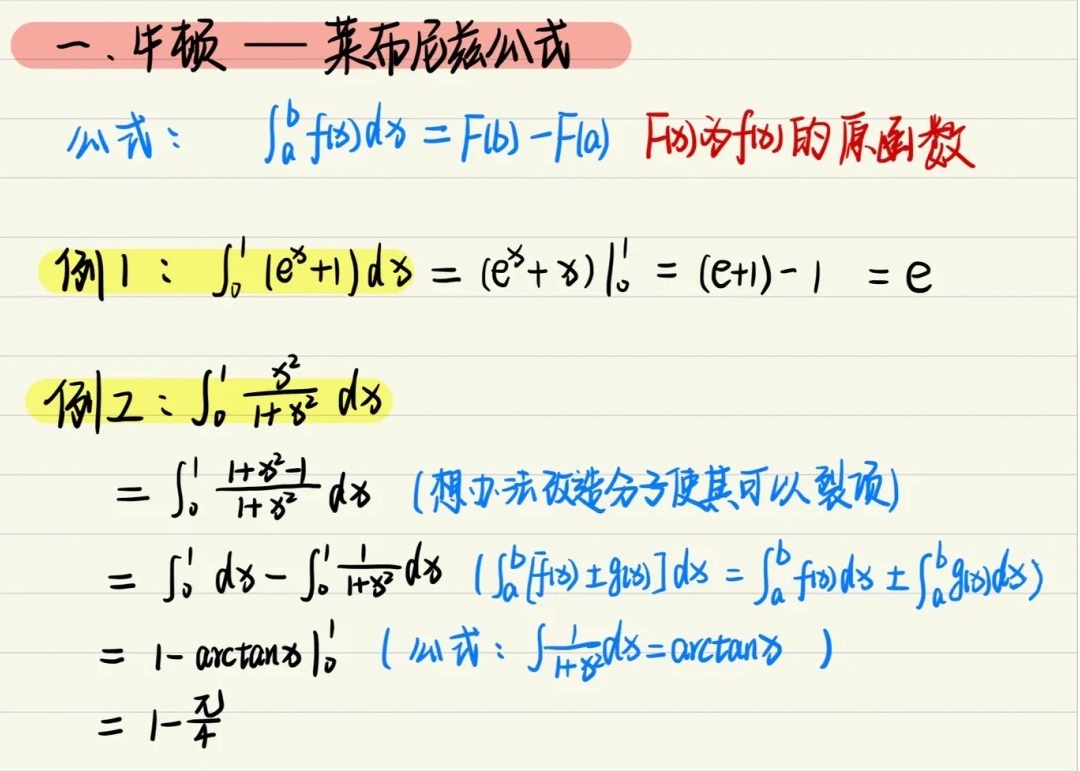 一、牛顿——莱布尼兹公式
公式： ∫ₐᵇ f(x)dx = F(b) - F(a) F(x)为f(x)的原函数
例1： ∫₀¹ (eˣ+1)dx = (eˣ+x)|₀¹ = (e+1)-1 = e
例2： ∫₀¹ x²/(1+x²) dx
= ∫₀¹ (1+x²-1)/(1+x²) dx (想办法改造分子使其可以裂项)
= ∫₀¹ dx - ∫₀¹ 1/(1+x²) dx (∫ₐᵇ[f(x)±g(x)]dx = ∫ₐᵇ f(x)dx ± ∫ₐᵇ g(x)dx)
= 1-arctanx|₀¹ (公式：∫ 1/(1+x²) dx = arctanx)
= 1-π/4